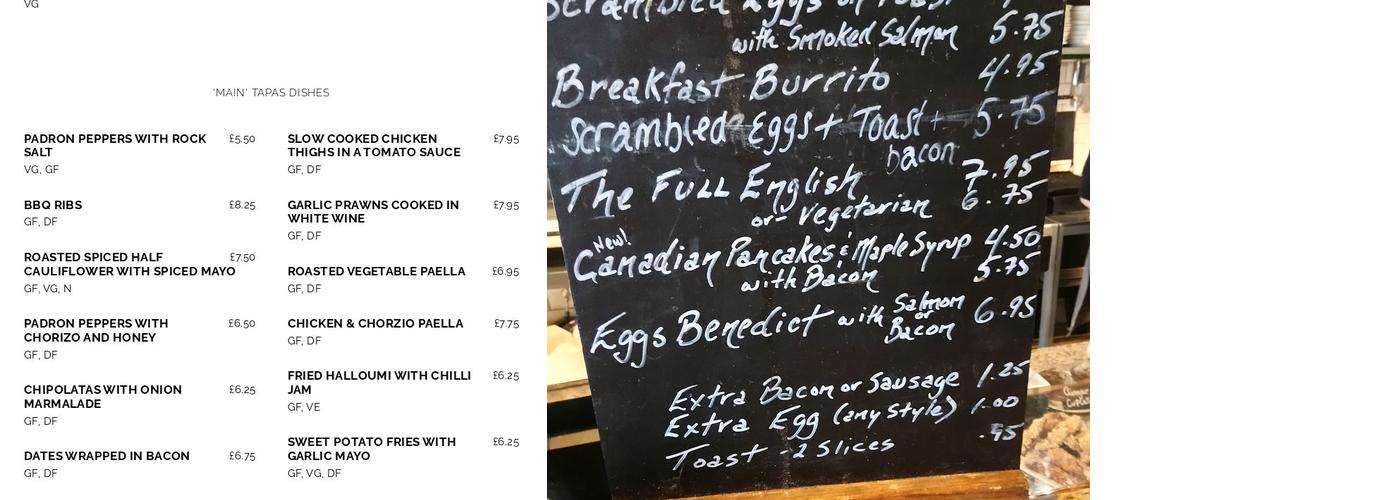 VG
'MAIN' TAPAS DISHES
PADRON PEPPERS WITH ROCK £5.50
SALT
VG, GF
BBQ RIBS £8.25
GF, DF
ROASTED SPICED HALF £7.50
CAULIFLOWER WITH SPICED MAYO
GF, VG, N
PADRON PEPPERS WITH £6.50
CHORIZO AND HONEY
GF, DF
CHIPOLATAS WITH ONION £6.25
MARMALADE
GF, DF
DATES WRAPPED IN BACON £6.75
GF, DF
SLOW COOKED CHICKEN £7.95
THIGHS IN A TOMATO SAUCE
GF, DF
GARLIC PRAWNS COOKED IN £7.95
WHITE WINE
GF, DF
ROASTED VEGETABLE PAELLA £6.95
GF, DF
CHICKEN & CHORZIO PAELLA £7.75
GF, DF
FRIED HALLOUMI WITH CHILLI £6.25
JAM
GF, VE
SWEET POTATO FRIES WITH £6.25
GARLIC MAYO
GF, VG, DF
Scrambled Eggs on Toast
with Smoked Salmon 5.75
Breakfast Burrito 4.95
Scrambled Eggs + Toast + 5.75
bacon
The FULL English 7.95
or - Vegetarian 6.75
New!
Canadian Pancakes & Maple Syrup 4.50
with Bacon 5.75
Eggs Benedict with Salmon 6.95
or
Bacon
Extra Bacon or Sausage 1.25
Extra Egg (any style) 1.00
Toast - 2 Slices .95